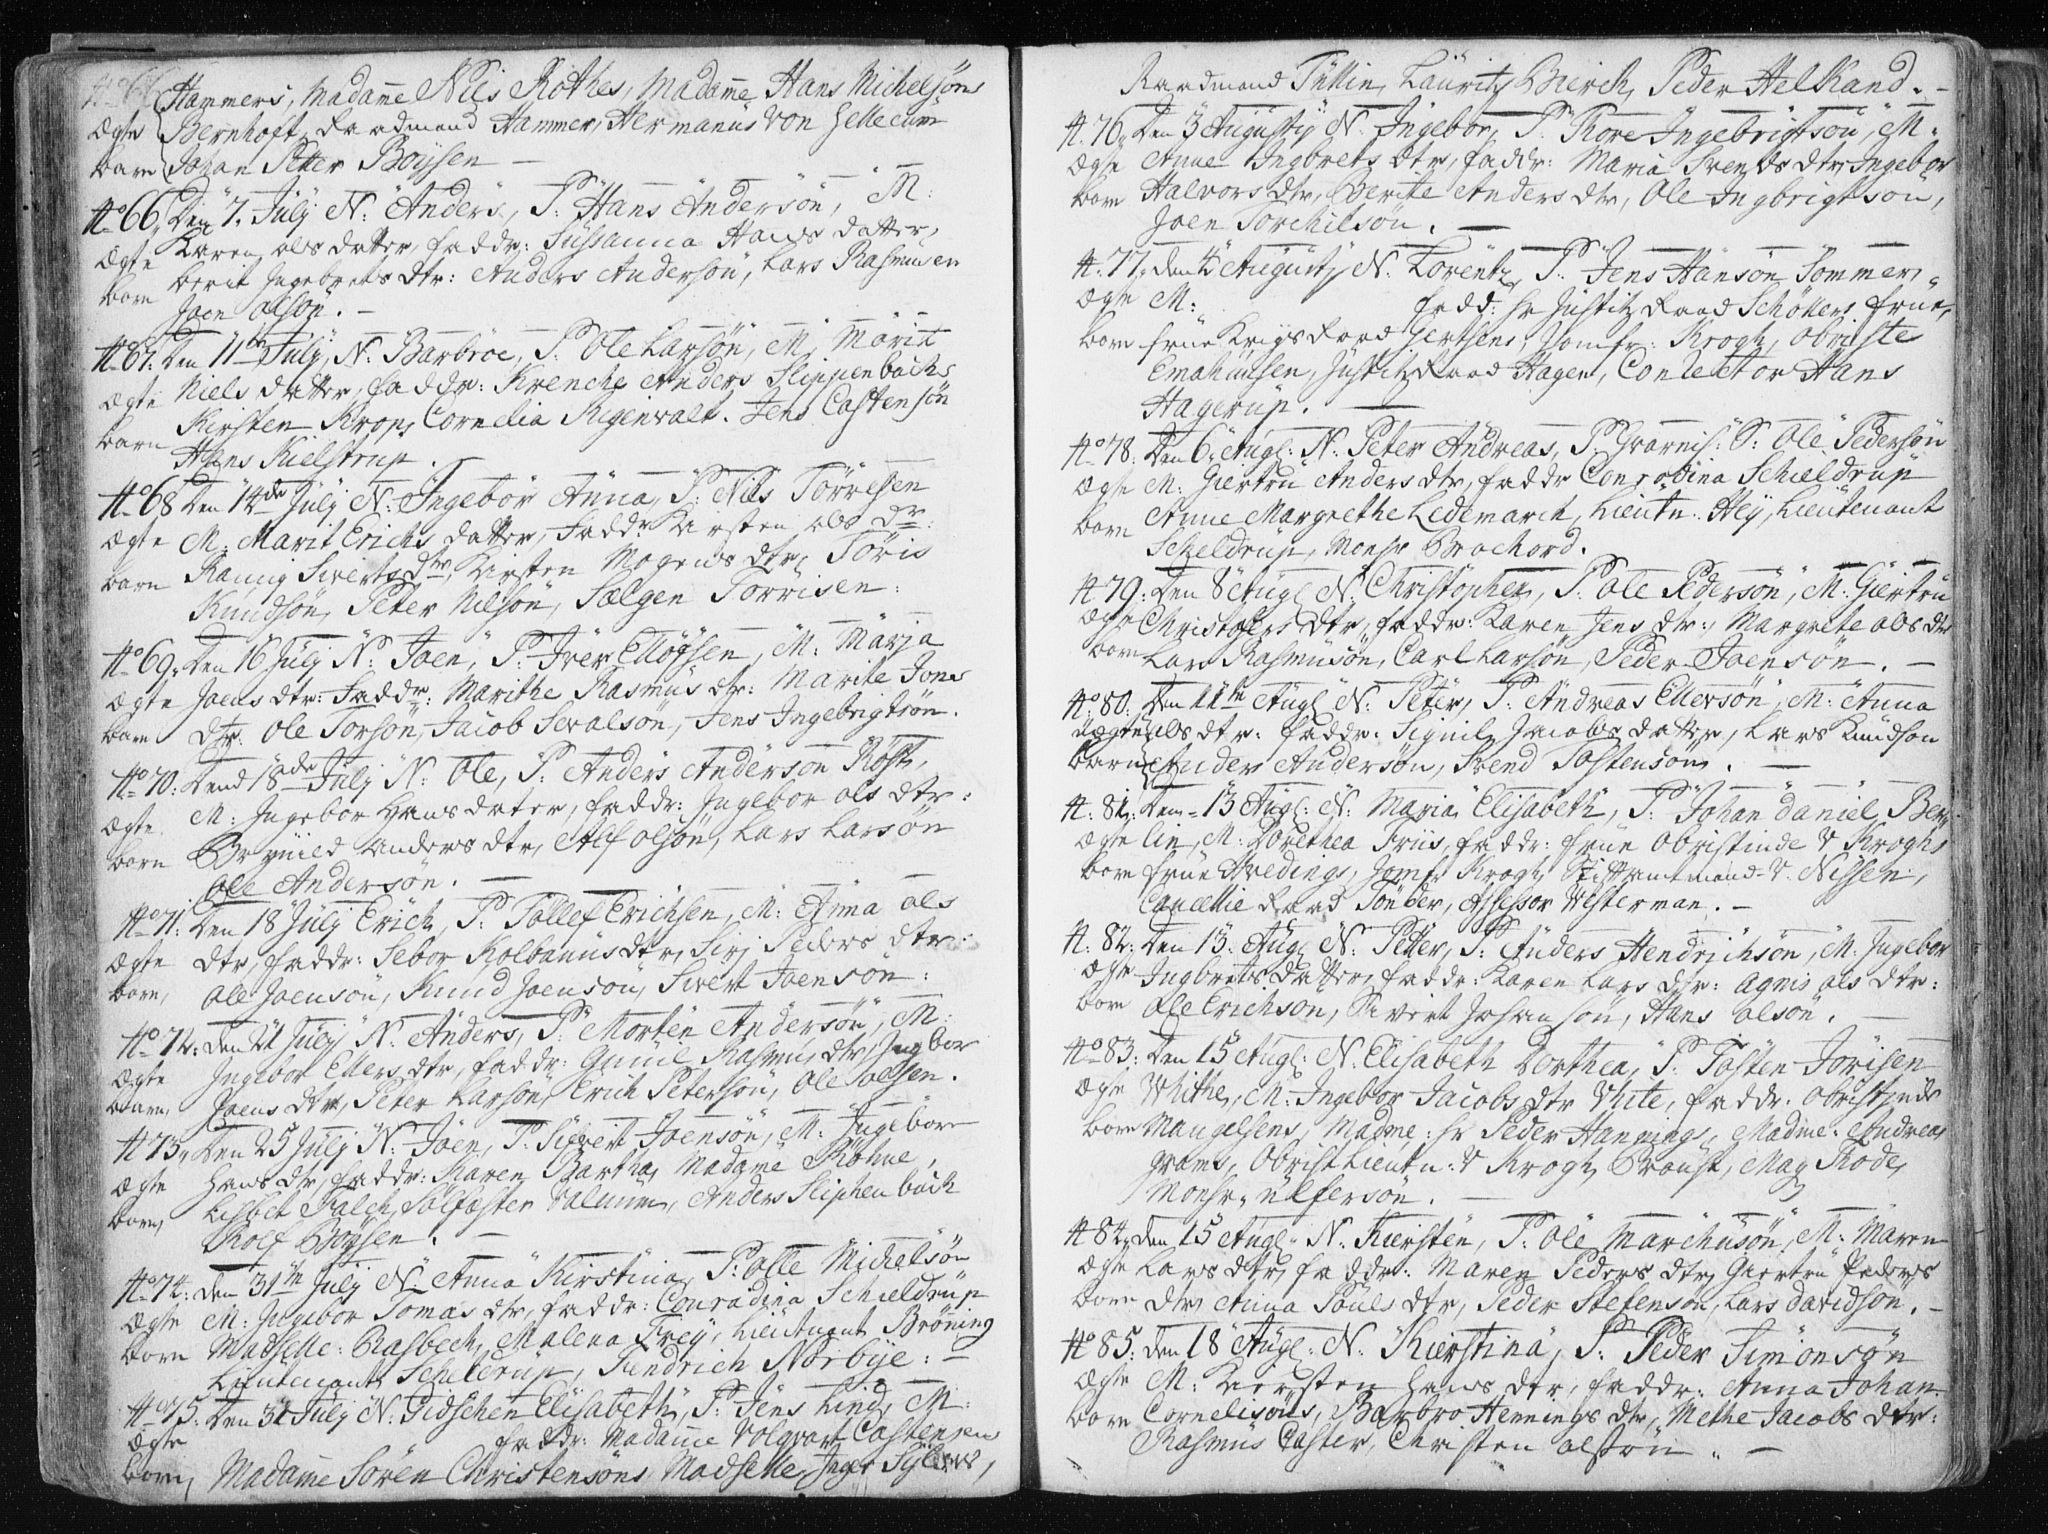 Hammers, Madame Niels Rothes, Madame Hans Michelsøns
Ægte Bernhoft, Raadmand Hammer, Hermanus Von
barn Johan Petter Boysen —
No 66, Den 7. Julij N: Anders, P: Hans Andersøn, M:
Ægte Karen Ols datter, faddr: Sussanna Hans datter,
barn berit Ingebrets dtr: Anders Andersøn, Lars Rasmusen
Joen Olsøn. —
No 67: Den 11te Julij, N: Barbroe, P: Ole Larsøn, M: Marit
Ægte Niels datter, faddr: Anders Slippenbachs
barn Kirsten Krop, Cornelia Riginvalt. Jens Castensøn
Hans Kielstrup.
No 68 Den 14de Julij N: Ingebor Anna, P: Nils Törresen
Ægte M: Marit Erichs datter, Faddr: Kirsten Ols dr:
barn Rannig Siverts dtr, Kirsten Mogens dtr, Töris
Knudsøn, Peter Nilsøn, Torrisen:
No 69: Den 16 Julij N: Joen, P: Iver Ellofsen, M: Marja
Ægte Joens dtr: Faddr: Marithe Rasmus dtr: Marite Jons
barn dtr: Ole Torsøn, Jacob Sevalsøn, Jens Ingebrigtsøn.
No 70: Dend 18de Julij N: Ole, P: Anders Andersøn Röst,
Ægte M: Ingebor Hans dater, faddr: Ingebor Ols dtr:
barn Brynild Anders dtr, Alf Olsøn, Lars Larsøn
Ole Andersøn. —
No 71: Den 18 Julij Erich, P: Tollef Erichsen, M: Anna Ols
Ægte dtr, faddr: Sebor Kolbanus dtr, Sirj Peders dtr:
barn, Ole Joensøn, Knud Joensøn, Sivert Joensøn:
No 72: Den 21 Julij N: Anders, P: Morten Andersøn, M:
Ægte Ingebor Ellers dtr, faddr: Gunil Rasmus dtr, Ingbor
barn, Joens dtr, Peter Larsøn, Erich Petersøn, Ole
No 73, Den 25 Julij N: Joen, P: Sivert Joensøn, M: Ingebor
Ægte Hans dtr, faddr: Karen Bartha, Madame Röhne,
barn, Lisbet Falch, Anders Sliphenbach
Rolf Boysen. —
No 74: Den 31te Julij N: Anna Kirstina, P: Olle Michelsøn
Ægte M: Ingebor Tomas dtr, faddr: Conradina Schieldrup
barn Madselle: Rasbech, Malena Frey, Lieutenant Bröning
Lieutenant Schelderup, Fendrich Norbye: —
No 75. Den 31 Julij N: Gidschen Elisabeth, P: Jens Lind, M:
Ægte faddr: Madame Volqvart Castensens
barn, Madame Sören Christensøns Madselle
Raadmand Tullin, Lauritz Bierch, Peder HelKand. —
No 76, Den 3 Augustij N. Ingebor, P: Tore Ingebrigtsøn, M.
Ægte Anne Ingbrets dtr, faddr: Maria Svends dtr, Ingebor
barn Halvors dtr, Berite Anders dtr, Ole Ingbrigtson,
Joen Torchilson. —
No 77, den 4 Augustj N. Lorentz, P: Jens Hansøn Sommer,
Ægte M: fadd: hr Justitz Raad Schöllers frue,
barn frue Krigs Raad Gertsens, Jomfr: Krogh, Obriste
Emahusen, Justitz Raad Hagen, Conrector Hans
Hagerup. —
No 78. Den 6: Augl: N: Peter Andreas, P. Ole Pedersøn
Ægte M: Giertru Anders dtr, faddr Conradina Schieldrup
barn Anne Margrethe Ledemarck, Lieutn: Hey, Lieutenant
Schieldrup, Monsr Brochord.
No 79: Den 8 Augl N. Christopher, P: Ole Pedersøn, M: Giertru
Ægte Christofers dtr, faddr: Karen Jens dtr: Margrete Ols dtr
barn Lars Rasmusøn, Carl Larsøn, Peder Joensøn. —
No 80: Den 11te Augl N: Peter, P: Andreas Ellersøn, M: Anna
Uægte Ols dtr: faddr: Signil Jacobs datter, Lars Knudson
barn Ander Andersøn, Svend Tostensøn. —
No 81: Den 13 Augl: N: Maria Elisabeth, P: Johan Daniel Ber-
Ægte lin, M: Dorethea Friis, faddr: frue Obristinde V Kroghs
barn frue Hvedings, Jomfr Krogh, Stiftamtmand V. Nissen,
Cancellie Raad Tönder, Assessor Vesterman. —
No 82: Den 13: Augl N: Petter, P: Anders Hendrichsøn, M: Ingebor
Ægte Ingbrets datter, faddr: Karen Lars dtr: Agnis Ols dtr:
barn Ole Erichson, Sivert Johansøn, Hans Olsøn. —
No 83: Den 15 Augl: N. Elisabeth Dorthea, P: Tosten Jorisen
Ægte Whithe, M: Ingebor Jacobs dtr White, faddr. Obristinde
barn Mangelsens, Madme: hr Peder Hannings, Madme: Andreas
grams, Obrist Lieutn: V Krogh, Proust, Mag Rode,
Monsr, Ulfersøn. —
No 84, den 15 Augl: N. Kiersten, P: Ole Marchusøn, M: Maren
Ægte Lars dtr, faddr: Maren Peders dtr, Giertru Peders
barn dtr, Anna Pouls dtr, Peder Stefensøn, Lars Davidsøn. —
No 85. den 18 Augl: N: Kierstina, P: Peder Simonsøn
Ægte M: Kiersten Hans dtr, faddr: Anna Johan
barn Cornelisøns, Barbro Hennings dtr, Methe Jacobs dtr:
Rasmus Caster, Christen Olsøn. —